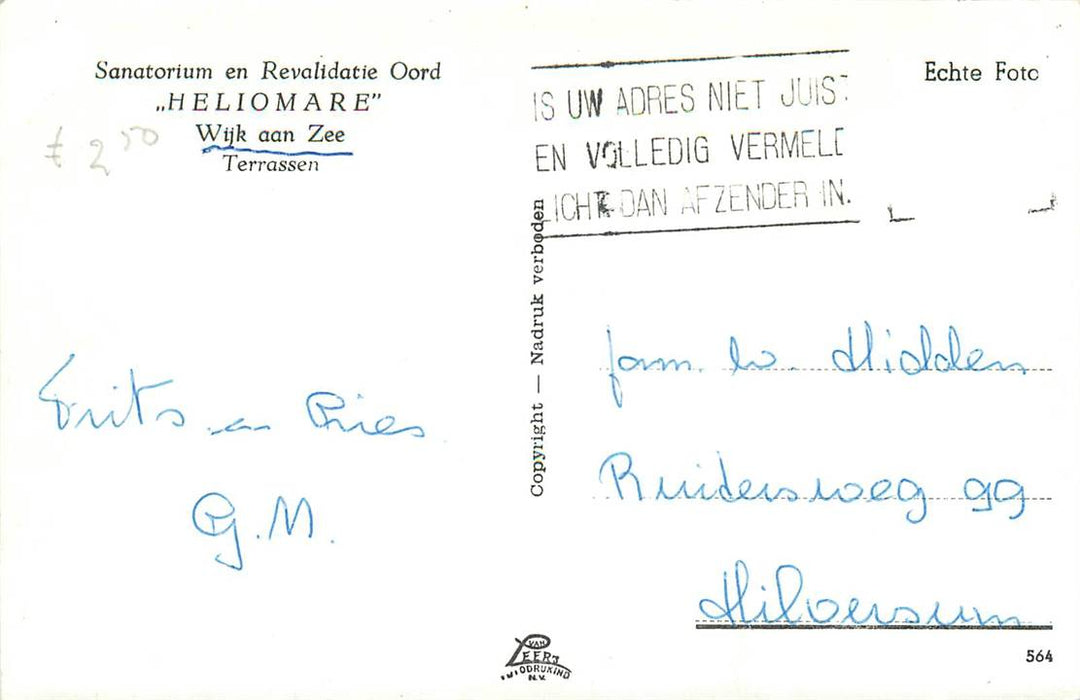 Sanatorium en Revalidatie Oord
„HELIOMARE”
Wijk aan Zee
Terrassen
€ 2 50
IS UW ADRES NIET JUIST
EN VOLLEDIG VERMELD
LICHT DAN AFZENDER IN.
Echte Foto
Copyright — Nadruk verboden
Frits en Ries
G.M.
fam. W. Hidden
Ruidersweg 99
Hilversum
VAN LEER'S
FOTODRUKIND
N.V.
564